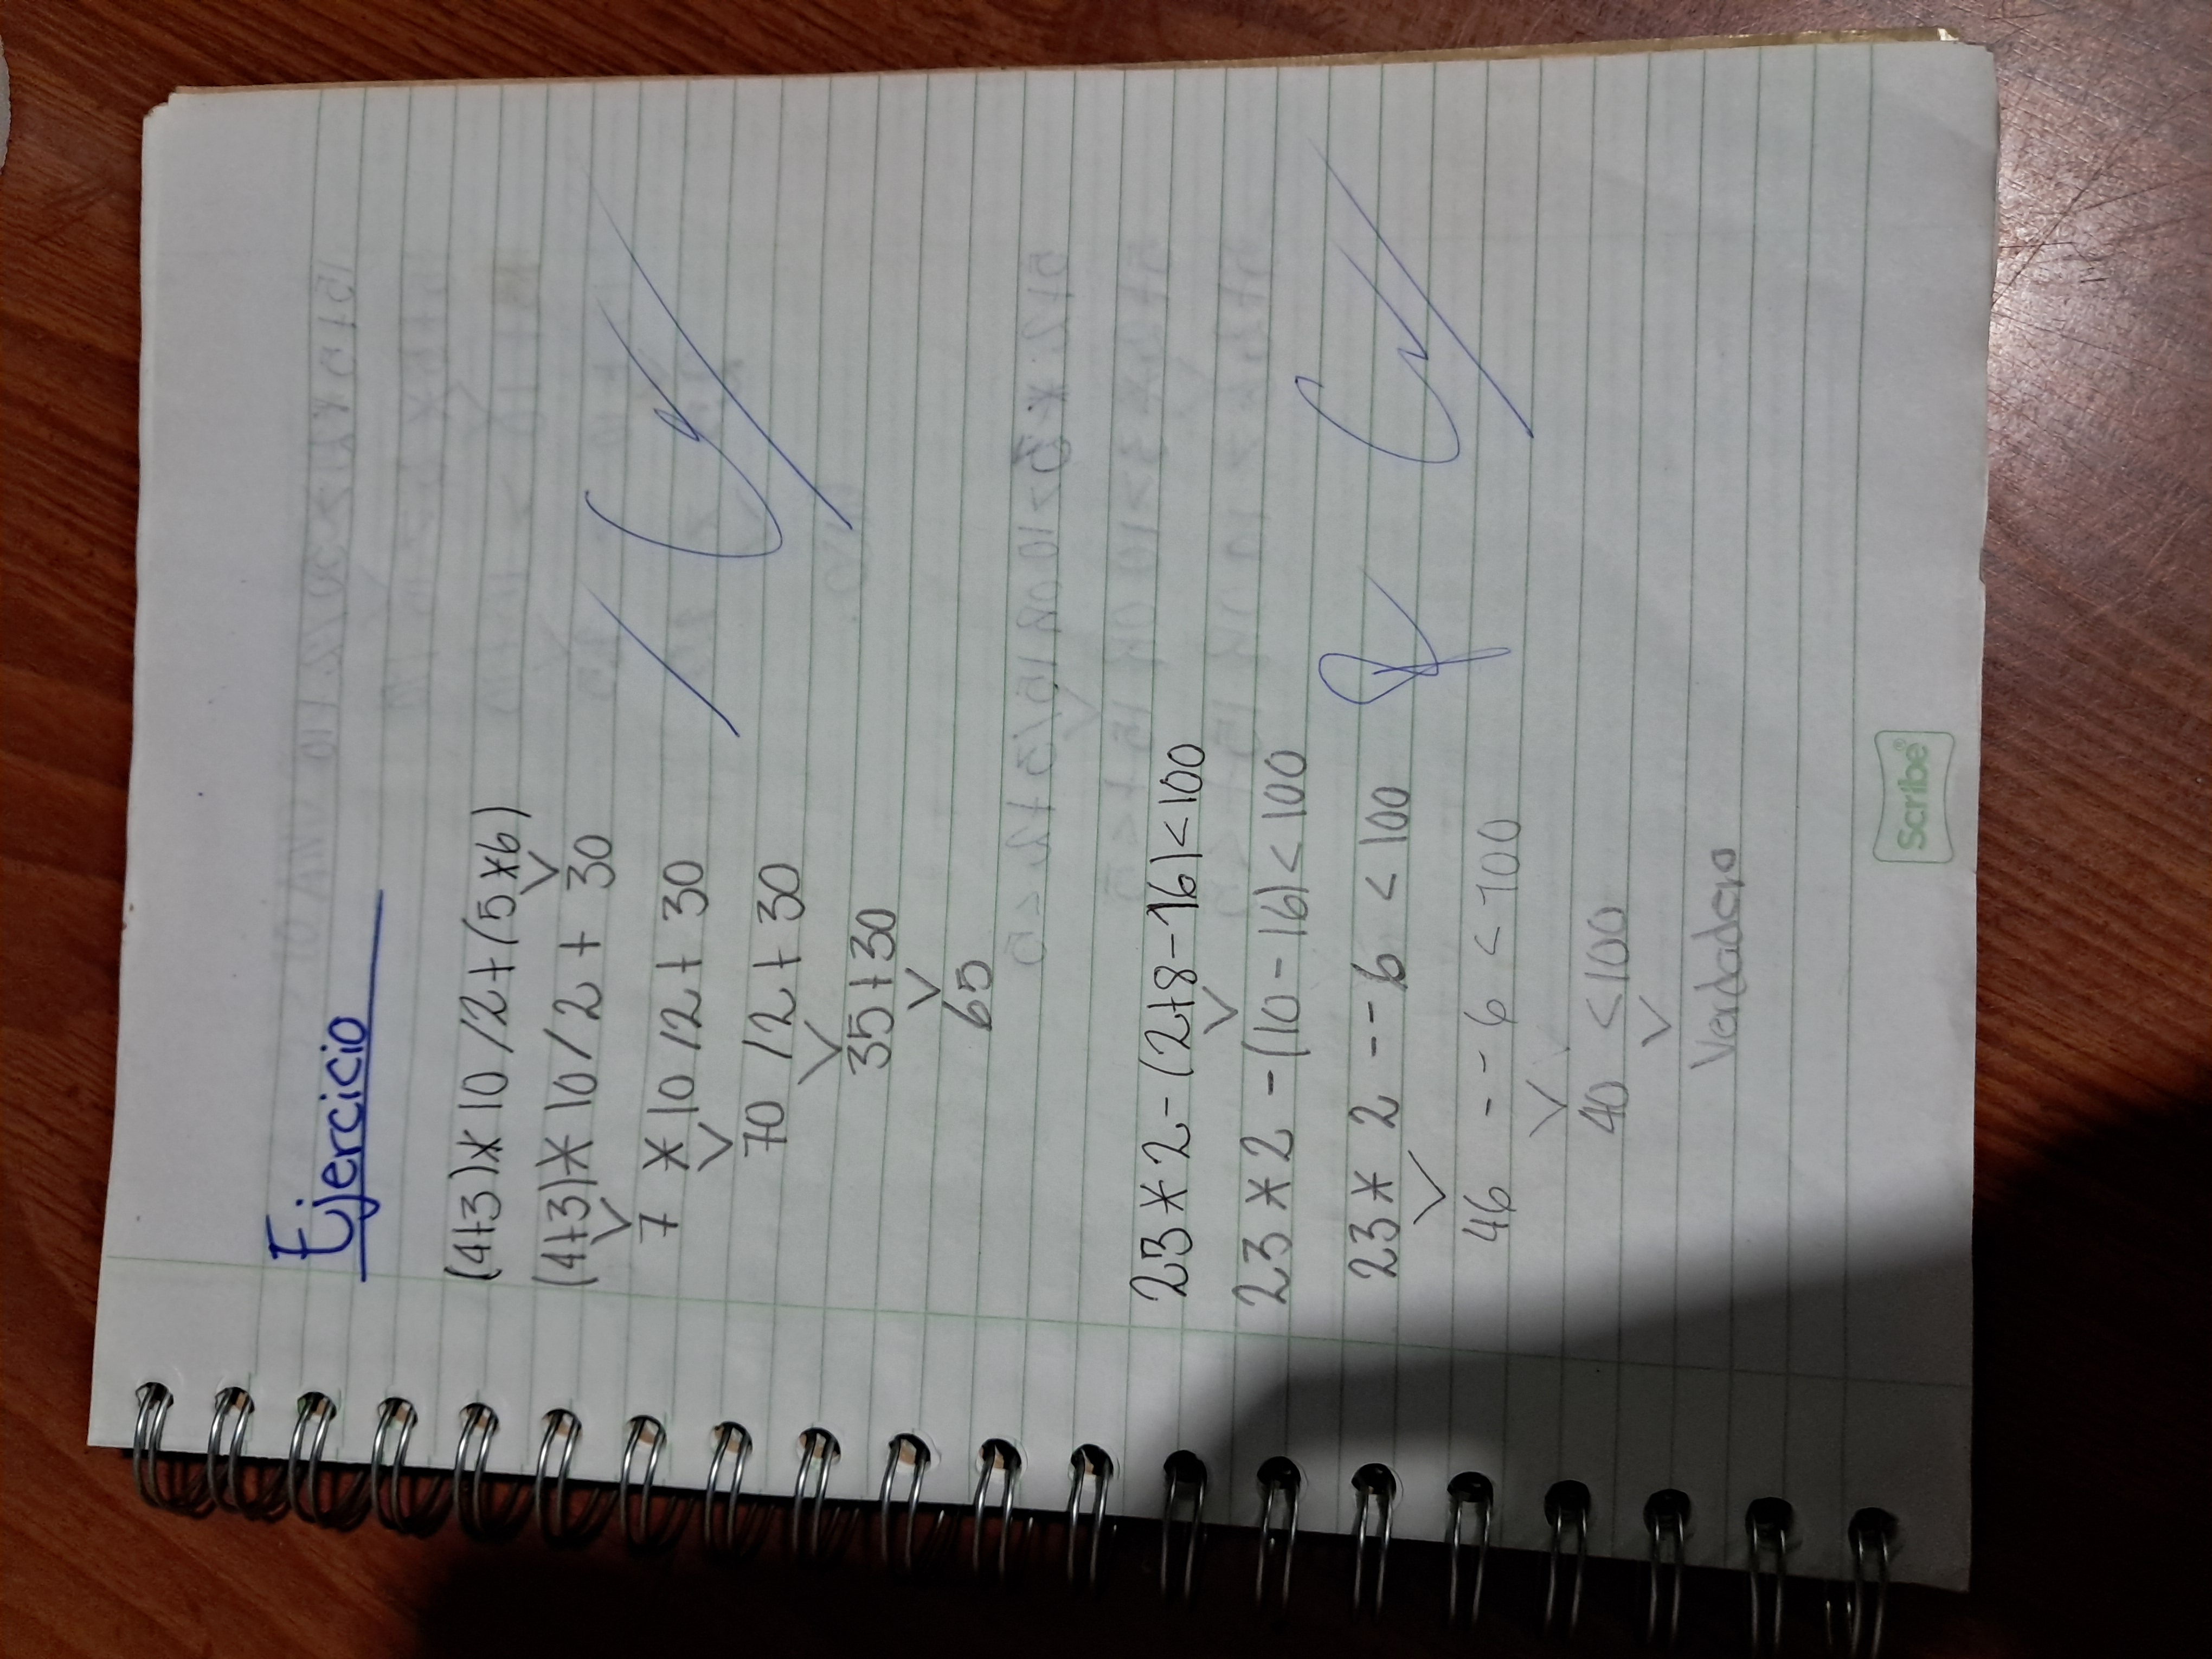 Ejercicio
(4+3)*10/2+(5*6)
(4+3)*10/2+30
7*10/2+30
70/2+30
35+30
65
23*2-(2+8-16)<100
23*2-(10-16)<100
23*2--6<100
46--6<100
40<100
Verdadero
Scribe®